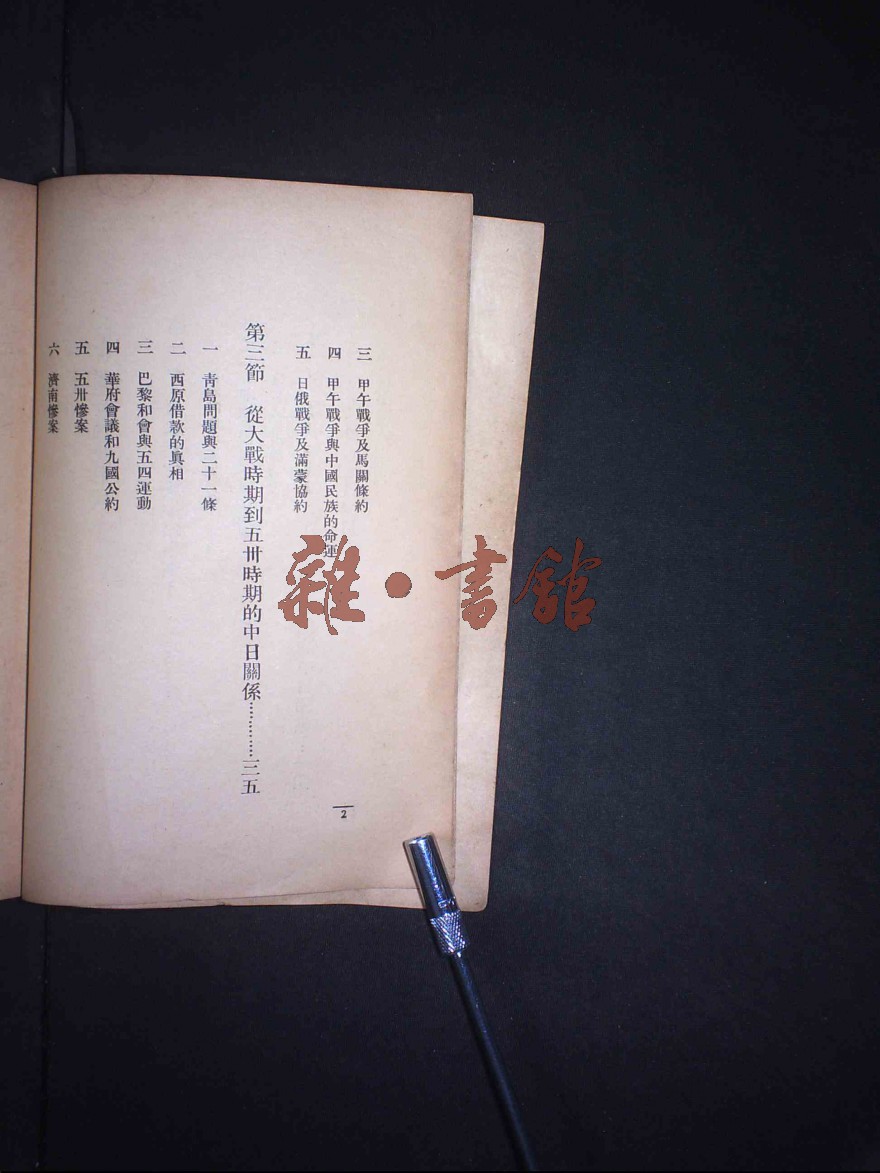 三　甲午戰爭及馬關條約
四　甲午戰爭與中國民族的命運
五　日俄戰爭及滿蒙協約
第三節　從大戰時期到五卅時期的中日關係…………三五
一　靑島問題與二十一條
二　西原借款的眞相
三　巴黎和會與五四運動
四　華府會議和九國公約
五　五卅慘案
六　濟南慘案
2
雜·書館